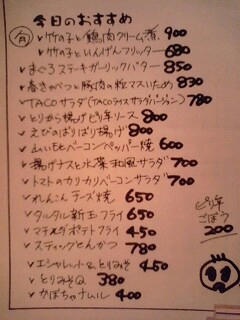 今日のおすすめ
竹の子と鶏肉クリーム煮 900
竹の子といんげんフリッター 680
まぐろステーキガーリックバター 850
春きゃべつと豚肉の粒マスいため 830
TACOサラダ(TACOライスサラダバージョン) 780
とりから揚げピリ辛ソース 800
えびのぱりぱり揚げ 800
山いもベーコンペッパー焼 600
揚げナスと水菜和風サラダ 700
トマトのカリカリベーコンサラダ 700
れんこんチーズ焼 650
タルタル新玉フライ 650
マチルダポテトフライ 450
スティックとんかつ 780
エシャレット&とりみそ 450
とりみそQ 380
かぼちゃナムル 400
ピリ辛
ごぼう
200